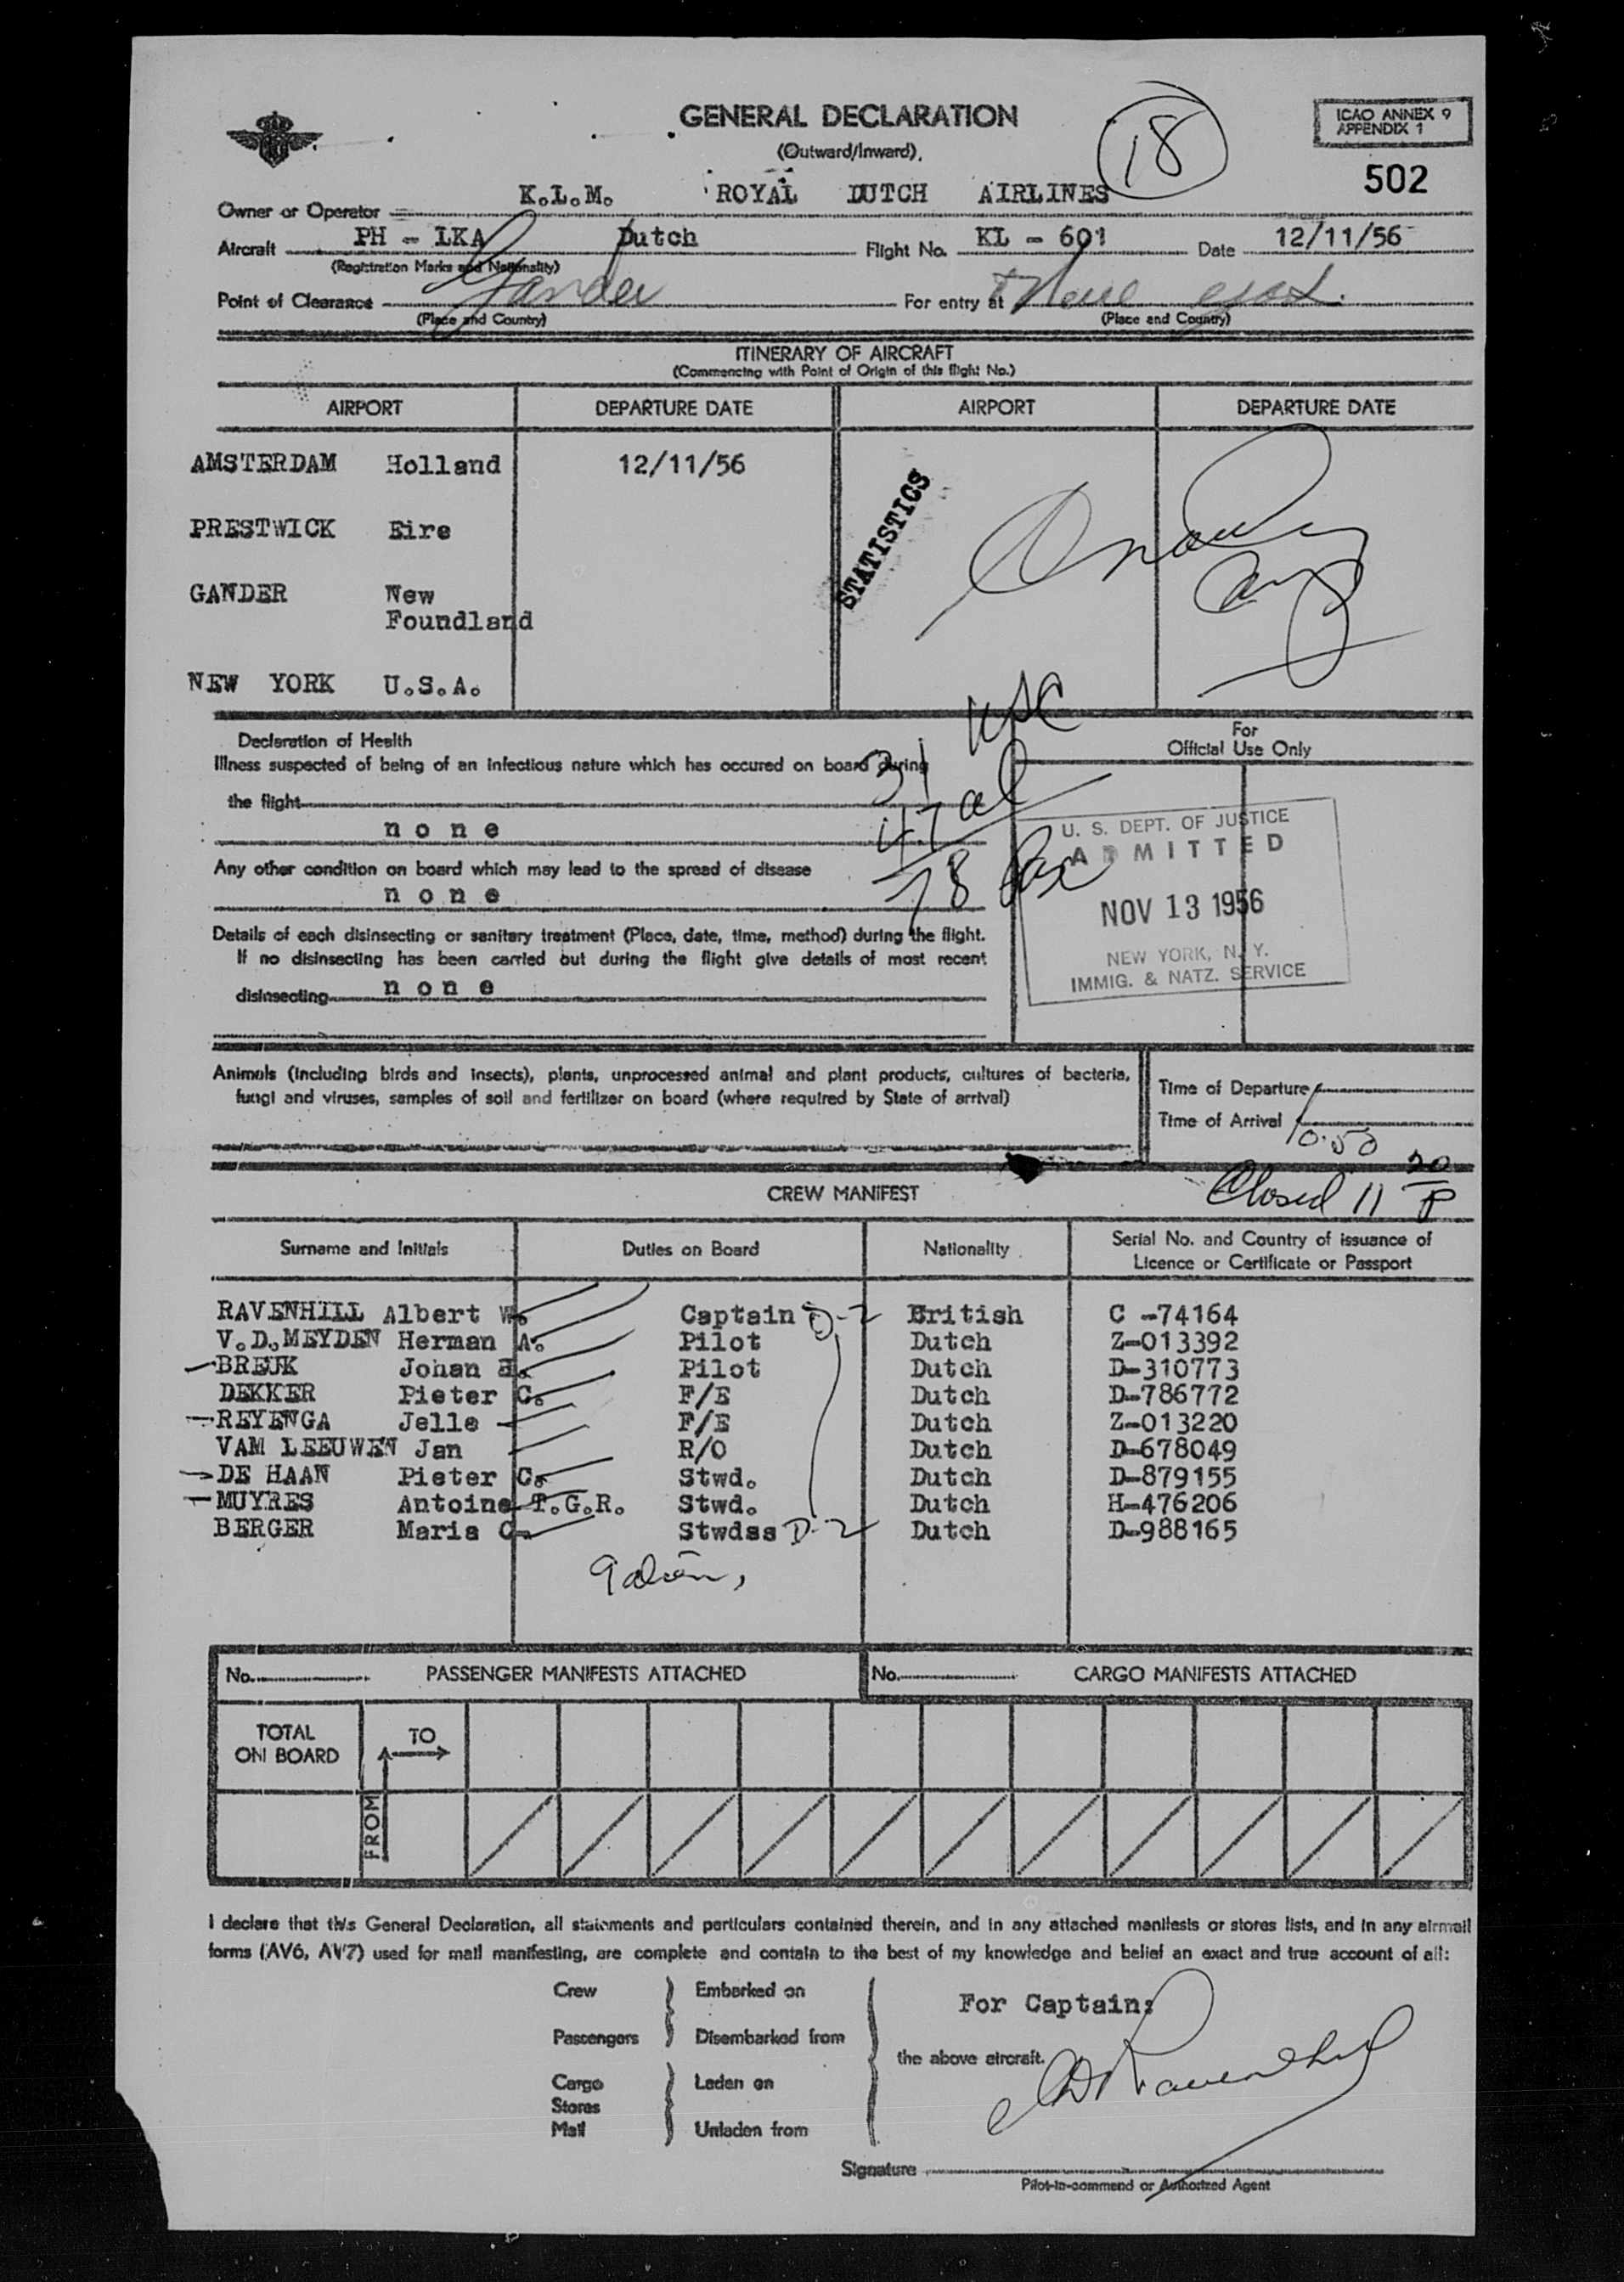 GENERAL DECLARATION
(Outward/Inward).
18
ICAO ANNEX 9
APPENDIX 1
502
Owner or Operator K.L.M. ROYAL DUTCH AIRLINES
Aircraft PH - LKA Dutch Flight No. KL - 601 Date 12/11/56
(Registration Marks and Nationality)
Point of Clearance Gander For entry at New York.
(Place and Country) (Place and Country)
ITINERARY OF AIRCRAFT
(Commencing with Point of Origin of this flight No.)
AIRPORT DEPARTURE DATE AIRPORT DEPARTURE DATE
AMSTERDAM Holland 12/11/56
STATISTICS
PRESTWICK Eire
GANDER New
Foundland
NEW YORK U.S.A.
Declaration of Health
For
Official Use Only
Illness suspected of being of an infectious nature which has occured on board during
the flight
none
31 USC
47 al
78 Pax
Any other condition on board which may lead to the spread of disease
none
Details of each disinsecting or sanitary treatment (Place, date, time, method) during the flight.
If no disinsecting has been carried out during the flight give details of most recent
disinsecting none
U. S. DEPT. OF JUSTICE
ADMITTED
NOV 13 1956
NEW YORK, N. Y.
IMMIG. & NATZ. SERVICE
Animals (including birds and insects), plants, unprocessed animal and plant products, cultures of bacteria,
fungi and viruses, samples of soil and fertilizer on board (where required by State of arrival)
Time of Departure
Time of Arrival 10:50
Closed 11 20/P
CREW MANIFEST
Surname and Initials Duties on Board Nationality Serial No. and Country of issuance of
Licence or Certificate or Passport
RAVENHILL Albert W. Captain D-2 British C -74164
V.D.MEYDEN Herman A. Pilot Dutch Z-013392
BREUK Johan Pilot Dutch D-310773
DEKKER Pieter C. F/E Dutch D-786772
REYENGA Jelle F/E Dutch Z-013220
VAM LEEUWEN Jan R/O Dutch D-678049
DE HAAN Pieter C. Stwd. Dutch D-879155
MUYRES Antoine T.G.R. Stwd. Dutch H-476206
BERGER Maria C. Stwdss D-2 Dutch D-988165
No. PASSENGER MANIFESTS ATTACHED No. CARGO MANIFESTS ATTACHED
TOTAL
ON BOARD
TO
FROM
I declare that this General Declaration, all statements and particulars contained therein, and in any attached manifests or stores lists, and in any airmail
forms (AV6, AV7) used for mail manifesting, are complete and contain to the best of my knowledge and belief an exact and true account of all:
Crew Embarked on
Passengers Disembarked from
Cargo Laden on
Stores
Mail Unladen from
For Captain:
the above aircraft.
Ravenhill
Signature
Pilot-in-command or Authorized Agent